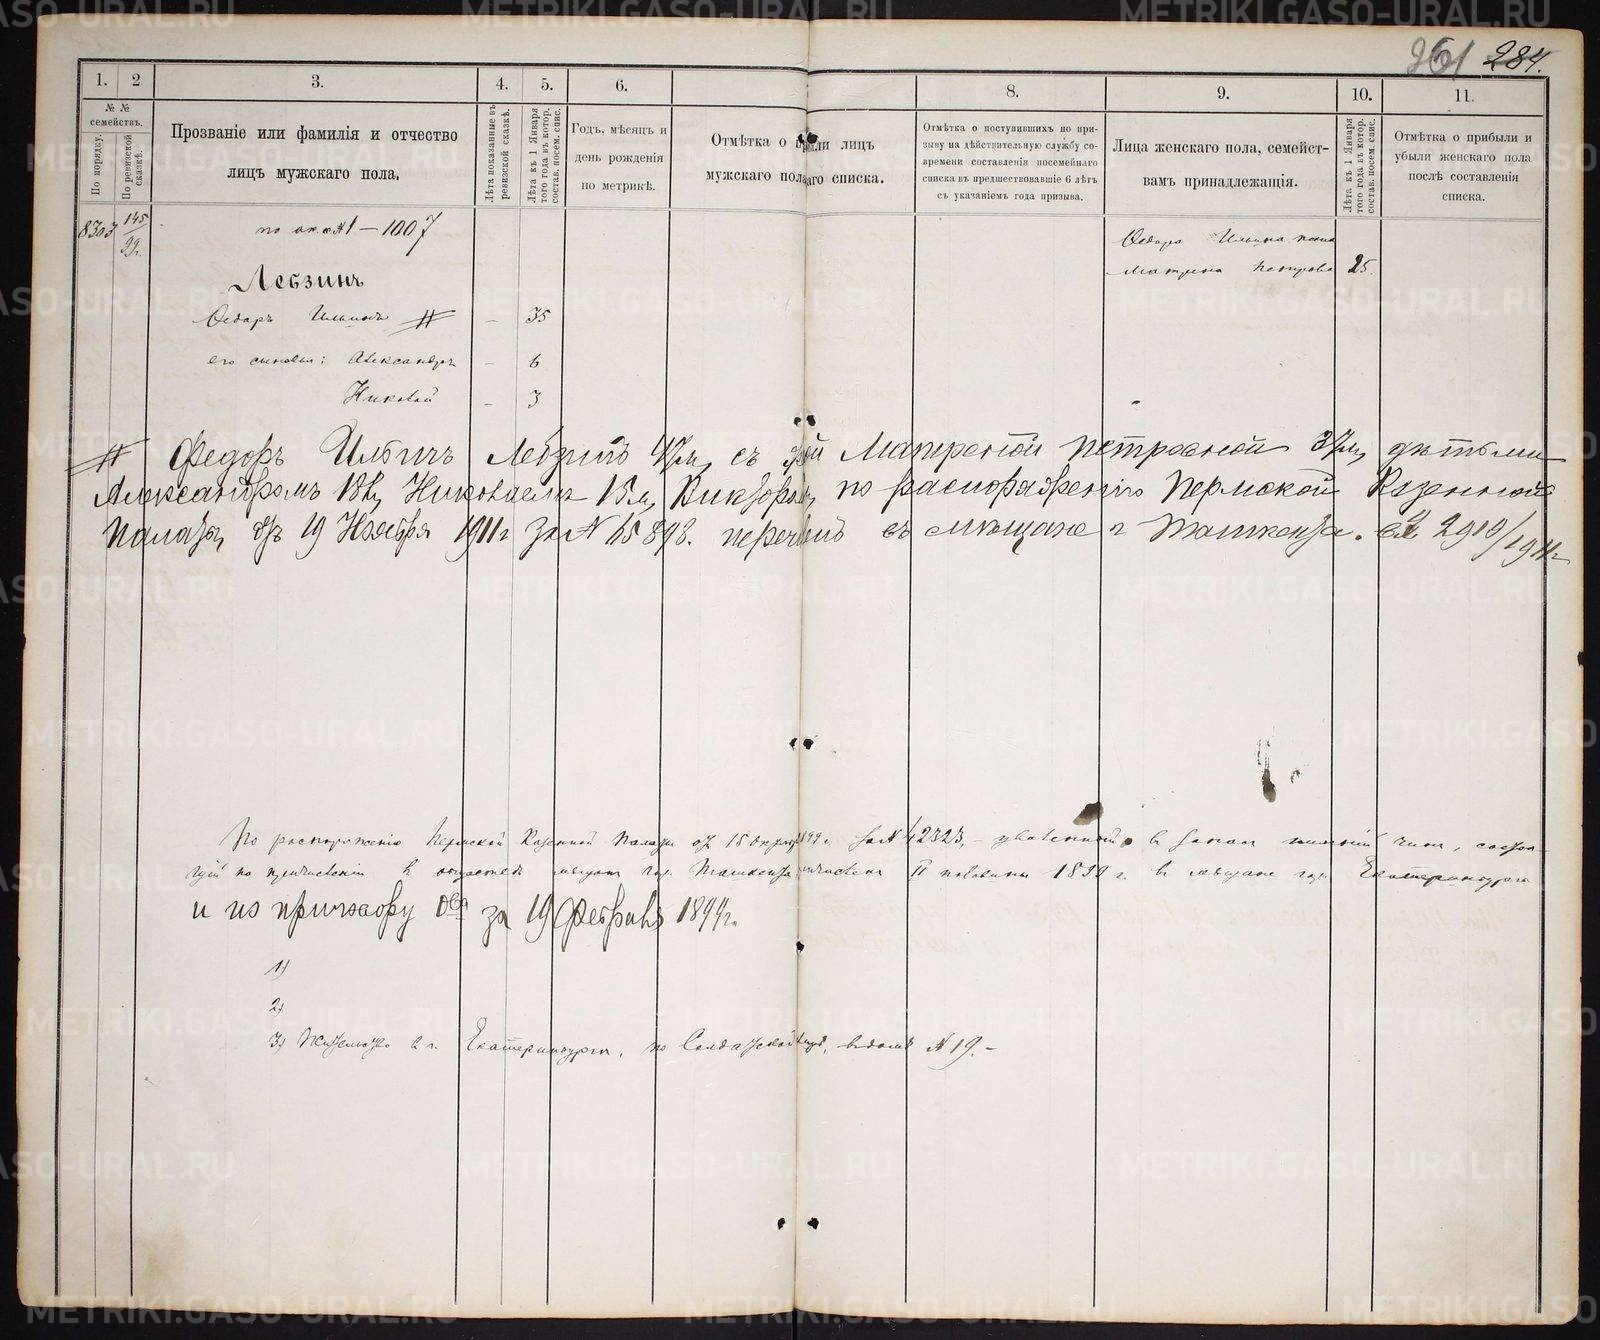 261 284.
1. 2 3. 4. 5. 6. 8. 9. 10. 11.
№ № семействъ.
По порядку.
По ревизской сказкѣ.
Прозваніе или фамилія и отчество
лицъ мужскаго пола.
Лѣта показанные въ
ревизской сказкѣ.
Лѣта къ 1 Января
того года въ котор.
состав. посем. спис.
Годъ, мѣсяцъ и
день рожденія
по метрикѣ.
Отмѣтка о лицъ
мужскаго списка.
Отмѣтка о поступившихъ по при-
зыву на дѣйствительную службу со-
времени составленія посемейнаго
списка въ предшествовавшіе 6 лѣтъ
съ указаніемъ года призыва.
Лица женскаго пола, семейст-
вамъ принадлежащія.
Лѣта къ 1 Января
того года въ котор.
состав. посем. спис.
Отмѣтка о прибыли и
убыли женскаго пола
послѣ составленія
списка.
145
29.
по № 1 – 1007
Лебзинъ
Федоръ Ильинъ – 35
его сыновья: Александръ – 6
Николай – 3
Федора Ильина жена
Матрена Петрова 25.
Федоръ Ильичъ Лебзинъ съ Матреной Петровной дѣтьми
Александромъ 18 л, Николаемъ 15 л, Викторомъ, по распоряженію Пермской Казенной
Палаты, отъ 19 Ноября 1911 г за № 15898. перечисленъ въ мѣщане г Ташкента. 2910/1911 г
По распоряженію Пермской Казенной Палаты отъ 15 за № 42323, – уволенный въ запас нижній чин,
по причисленіи мѣщан гор. Ташкента II половины 1899 г. в мѣщане гор. Екатеринбурга
и по приговору Об-ва за 19 Февраля 1899 г.
1)
2)
3) Жительство в г. Екатеринбурге, по Солдатской № 19. –
METRIKI.GASO-URAL.RU